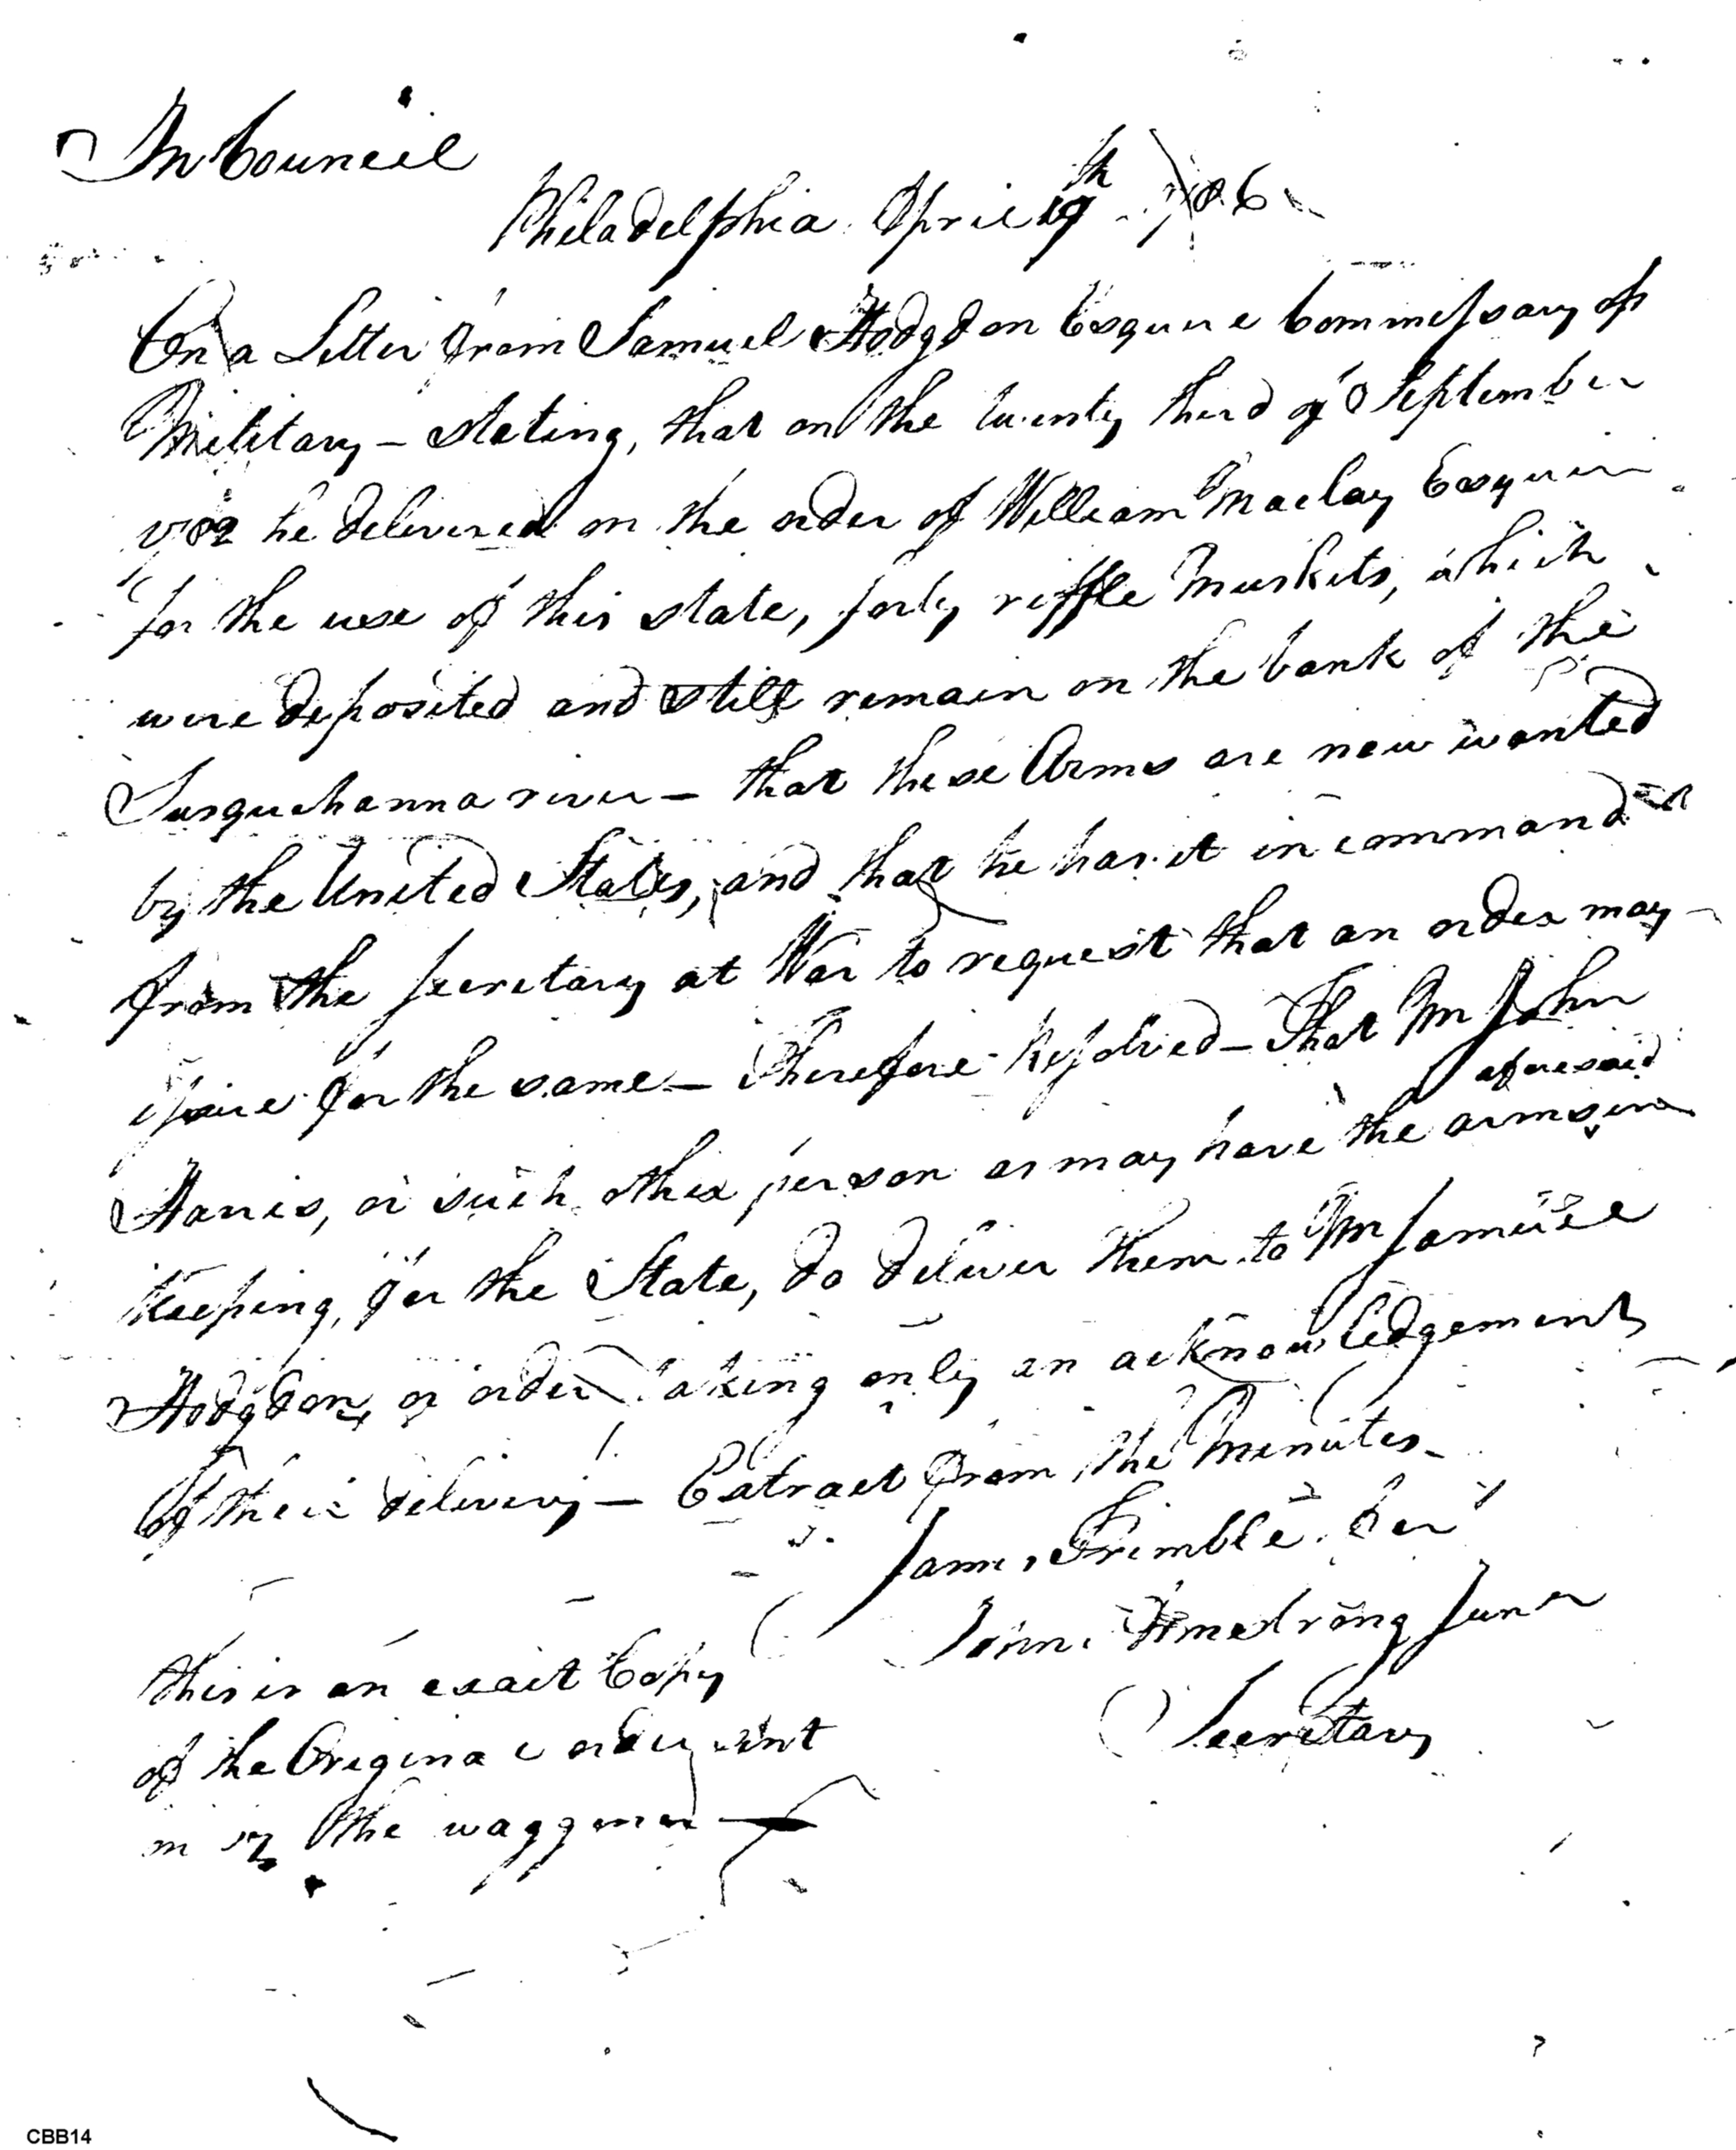 In Council
Philadelphia April 19th 1786
On a Letter from Samuel Hodgdon Esquire Commissary of
Military - stating, that on the twenty third of September
he delivered on the order of William Maclay Esquire
for the use of this state, forty riffle Muskets, which
were deposited and still remain on the bank of the
Susquehanna river - that these Arms are now wanted
by the United States, and that he has it in command
from the Secretary at War to request that an order may
for the same - Therefore Resolved - That Mr John
Harris, or such other person as may have the arms aforesaid in
Keeping, for the State, do deliver them to Mr Samuel
Hodgdon, or order taking only an acknowledgement
of their delivery - Extract from the Minutes -
James Trimble for
John Armstrong Junr
Secretary
this is an exact Copy
of the Original order sent
the waggoner
CBB14